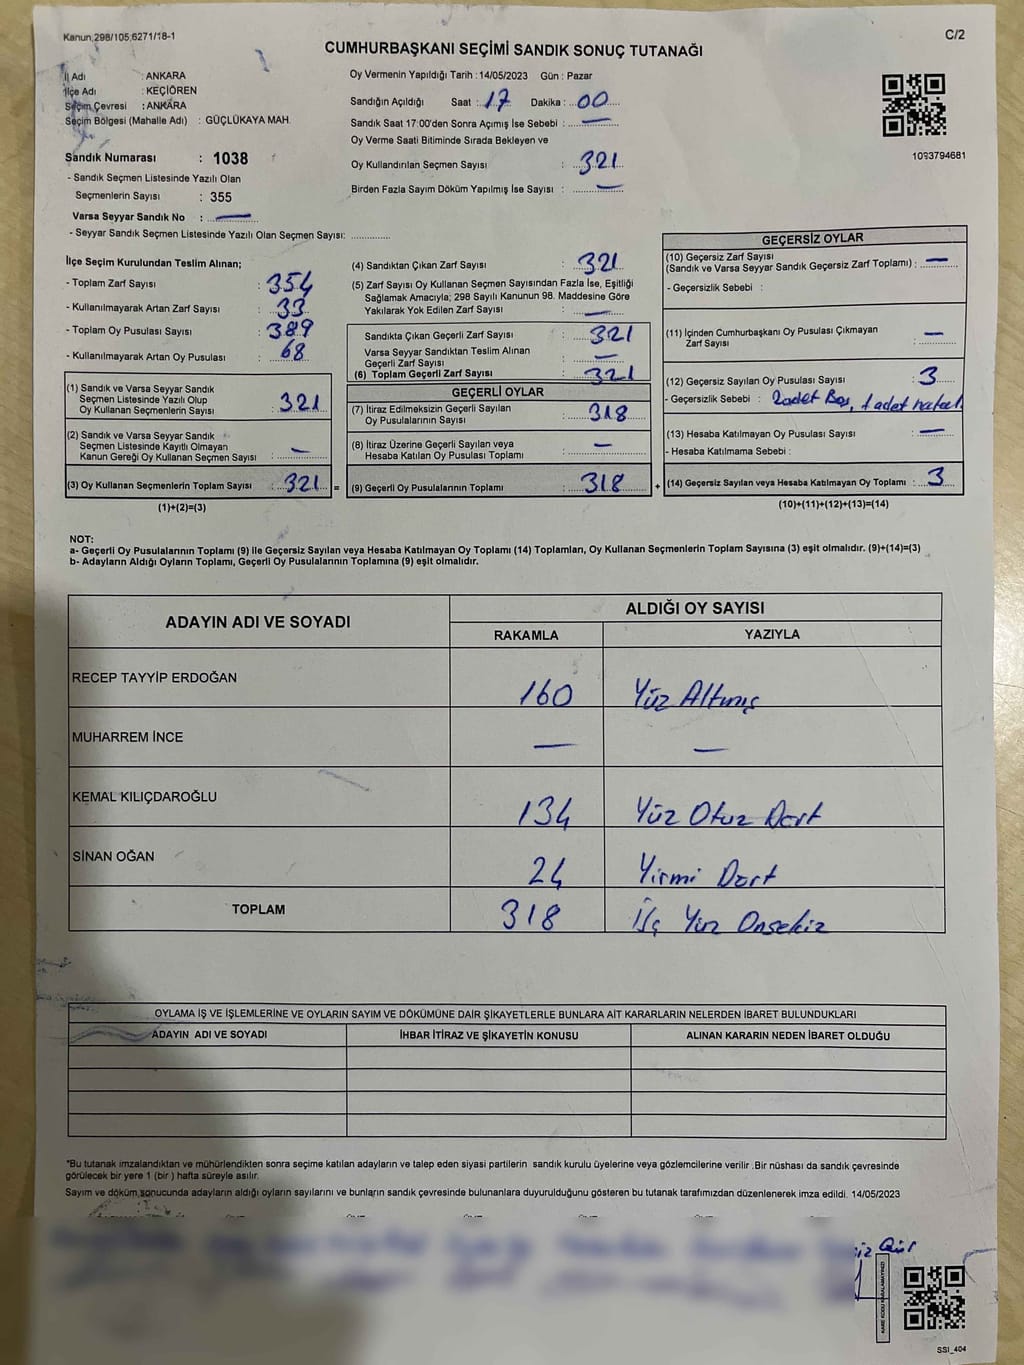 Kanun;298/105,6271/18-1
C/2
CUMHURBAŞKANI SEÇİMİ SANDIK SONUÇ TUTANAĞI
İl Adı : ANKARA
İlçe Adı : KEÇİÖREN
Seçim Çevresi : ANKARA
Seçim Bölgesi (Mahalle Adı) : GÜÇLÜKAYA MAH.
Sandık Numarası : 1038
- Sandık Seçmen Listesinde Yazılı Olan
Seçmenlerin Sayısı : 355
Varsa Seyyar Sandık No : —
- Seyyar Sandık Seçmen Listesinde Yazılı Olan Seçmen Sayısı: .............
Oy Vermenin Yapıldığı Tarih : 14/05/2023 Gün : Pazar
Sandığın Açıldığı Saat : 17 Dakika : 00
Sandık Saat 17:00'den Sonra Açımış İse Sebebi : —
Oy Verme Saati Bitiminde Sırada Bekleyen ve
Oy Kullandırılan Seçmen Sayısı : 321
Birden Fazla Sayım Döküm Yapılmış İse Sayısı : —
1093794681
İlçe Seçim Kurulundan Teslim Alınan;
- Toplam Zarf Sayısı : 354
- Kullanılmayarak Artan Zarf Sayısı : 33
- Toplam Oy Pusulası Sayısı : 389
- Kullanılmayarak Artan Oy Pusulası : 68
(1) Sandık ve Varsa Seyyar Sandık
Seçmen Listesinde Yazılı Olup
Oy Kullanan Seçmenlerin Sayısı : 321
(2) Sandık ve Varsa Seyyar Sandık
Seçmen Listesinde Kayıtlı Olmayan
Kanun Gereği Oy Kullanan Seçmen Sayısı : —
(3) Oy Kullanan Seçmenlerin Toplam Sayısı : 321 =
(1)+(2)=(3)
(4) Sandıktan Çıkan Zarf Sayısı : 321
(5) Zarf Sayısı Oy Kullanan Seçmen Sayısından Fazla İse, Eşitliği
Sağlamak Amacıyla; 298 Sayılı Kanunun 98. Maddesine Göre
Yakılarak Yok Edilen Zarf Sayısı : —
Sandıkta Çıkan Geçerli Zarf Sayısı : 321
Varsa Seyyar Sandıktan Teslim Alınan
Geçerli Zarf Sayısı : —
(6) Toplam Geçerli Zarf Sayısı : 321
GEÇERLİ OYLAR
(7) İtiraz Edilmeksizin Geçerli Sayılan
Oy Pusulalarının Sayısı : 318
(8) İtiraz Üzerine Geçerli Sayılan veya
Hesaba Katılan Oy Pusulası Toplamı : —
(9) Geçerli Oy Pusulalarının Toplamı : 318 +
GEÇERSİZ OYLAR
(10) Geçersiz Zarf Sayısı
(Sandık ve Varsa Seyyar Sandık Geçersiz Zarf Toplamı) : —
- Geçersizlik Sebebi :
(11) İçinden Cumhurbaşkanı Oy Pusulası Çıkmayan
Zarf Sayısı : —
(12) Geçersiz Sayılan Oy Pusulası Sayısı : 3
- Geçersizlik Sebebi : 2 adet Boş, 1 adet
(13) Hesaba Katılmayan Oy Pusulası Sayısı : —
- Hesaba Katılmama Sebebi :
(14) Geçersiz Sayılan veya Hesaba Katılmayan Oy Toplamı : 3
(10)+(11)+(12)+(13)=(14)
NOT:
a- Geçerli Oy Pusulalarının Toplamı (9) ile Geçersiz Sayılan veya Hesaba Katılmayan Oy Toplamı (14) Toplamları, Oy Kullanan Seçmenlerin Toplam Sayısına (3) eşit olmalıdır. (9)+(14)=(3)
b- Adayların Aldığı Oyların Toplamı, Geçerli Oy Pusulalarının Toplamına (9) eşit olmalıdır.
ADAYIN ADI VE SOYADI
ALDIĞI OY SAYISI
RAKAMLA YAZIYLA
RECEP TAYYİP ERDOĞAN 160 Yüz Altmış
MUHARREM İNCE — —
KEMAL KILIÇDAROĞLU 134 Yüz Otuz Dört
SİNAN OĞAN 24 Yirmi Dört
TOPLAM 318 Üç Yüz Onsekiz
OYLAMA İŞ VE İŞLEMLERİNE VE OYLARIN SAYIM VE DÖKÜMÜNE DAİR ŞİKAYETLERLE BUNLARA AİT KARARLARIN NELERDEN İBARET BULUNDUKLARI
ADAYIN ADI VE SOYADI İHBAR İTİRAZ VE ŞİKAYETİN KONUSU ALINAN KARARIN NEDEN İBARET OLDUĞU
*Bu tutanak imzalandıktan ve mühürlendikten sonra seçime katılan adayların ve talep eden siyasi partilerin sandık kurulu üyelerine veya gözlemcilerine verilir .Bir nüshası da sandık çevresinde
görülecek bir yere 1 (bir ) hafta süreyle asılır.
Sayım ve döküm sonucunda adayların aldığı oyların sayılarını ve bunların sandık çevresinde bulunanlara duyurulduğunu gösteren bu tutanak tarafımızdan düzenlenerek imza edildi. 14/05/2023
KARE KODU KARALAMAYINIZ!
SSI_404